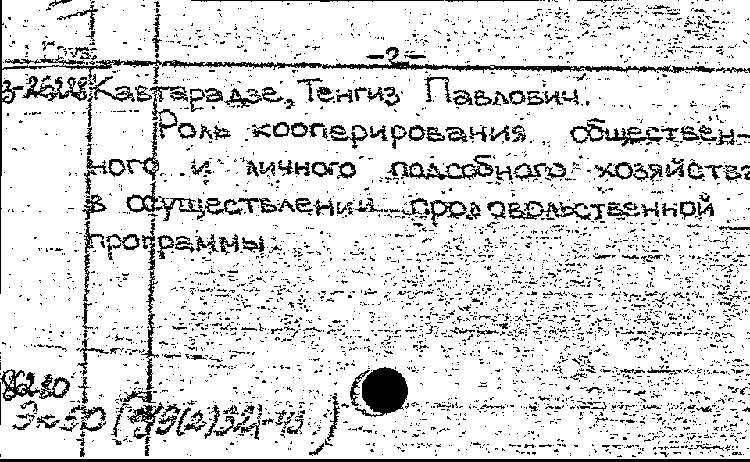 -2-
Кавтарадзе, Тенгиз Павлович.
Роль кооперирования обществен-
ного и личного подсобного хозяйства
в осуществлении продовольственной
программы.
86280